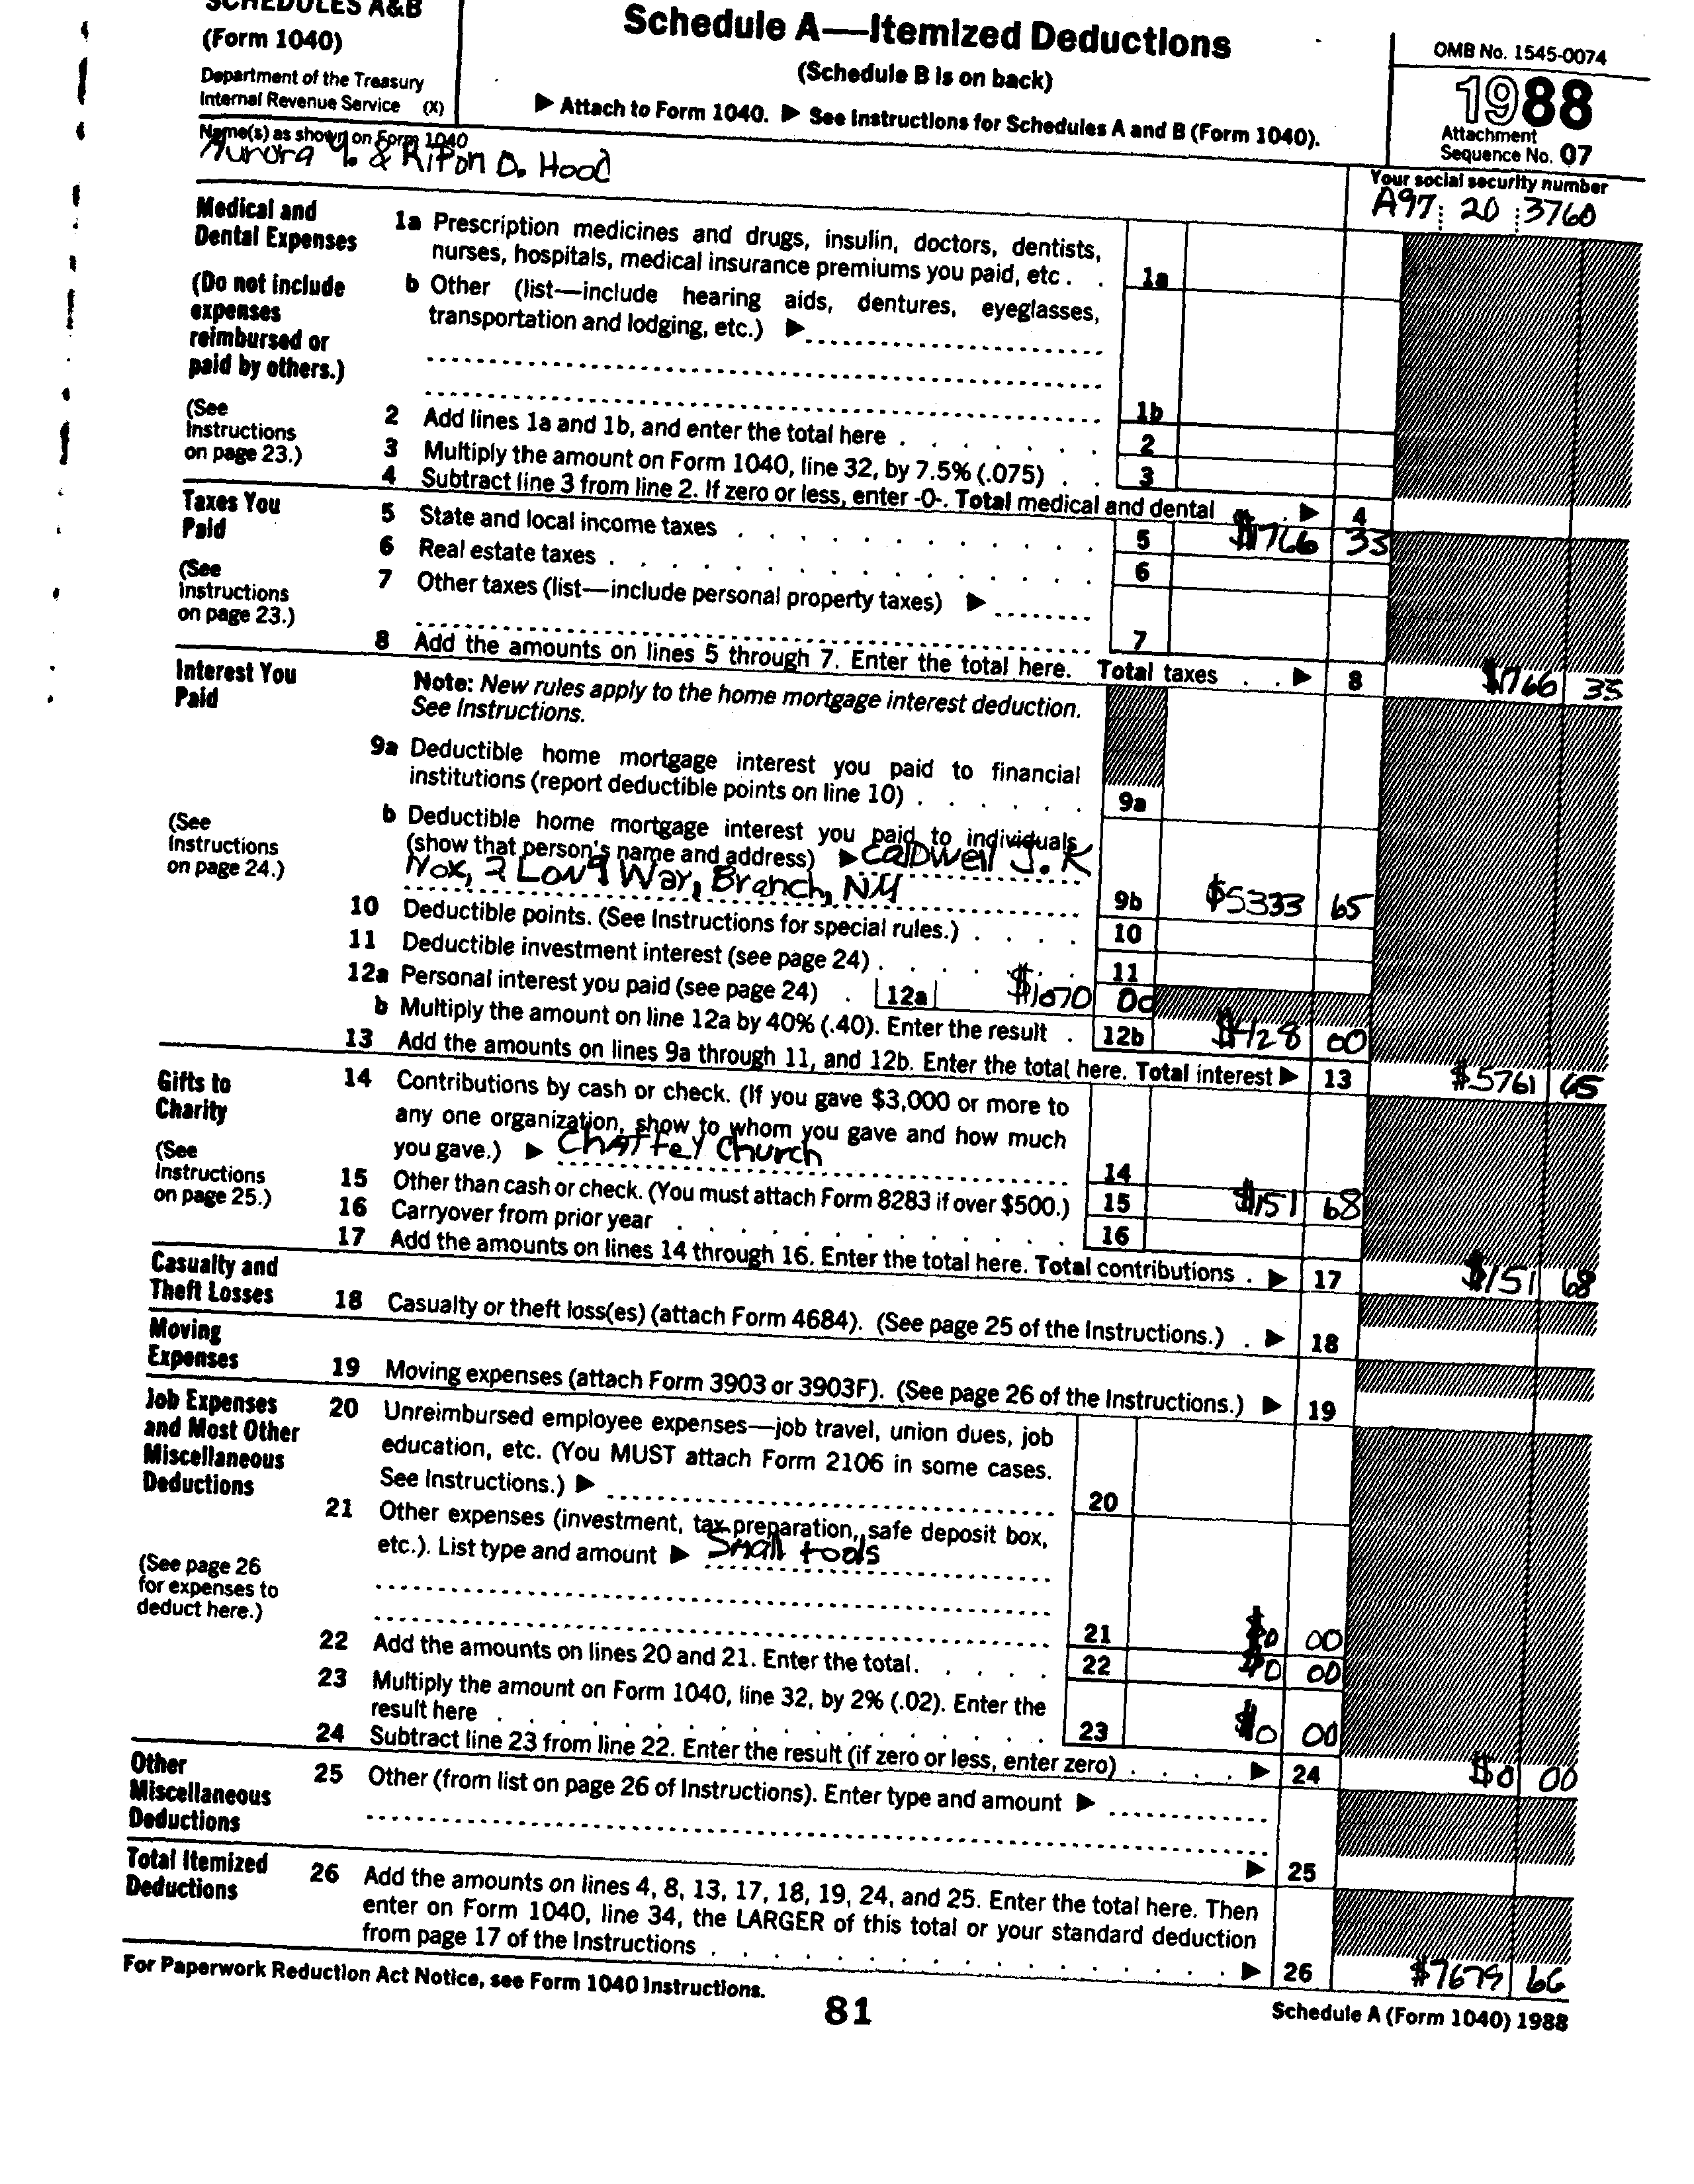 SCHEDULES A&B
(Form 1040)
Department of the Treasury
Internal Revenue Service (X)
Schedule A—Itemized Deductions
(Schedule B is on back)
▶ Attach to Form 1040. ▶ See Instructions for Schedules A and B (Form 1040).
OMB No. 1545-0074
1988
Attachment
Sequence No. 07
Name(s) as shown on Form 1040
Aurora Y. & Ripon D. Hood
Your social security number
A97 20 3760
Medical and
Dental Expenses
(Do not include
expenses
reimbursed or
paid by others.)
(See
Instructions
on page 23.)
1a Prescription medicines and drugs, insulin, doctors, dentists,
nurses, hospitals, medical insurance premiums you paid, etc . . 1a
b Other (list—include hearing aids, dentures, eyeglasses,
transportation and lodging, etc.) ▶
1b
2 Add lines 1a and 1b, and enter the total here . . . . . . . 2
3 Multiply the amount on Form 1040, line 32, by 7.5% (.075) . . 3
4 Subtract line 3 from line 2. If zero or less, enter -0-. Total medical and dental . . ▶ 4
Taxes You
Paid
(See
Instructions
on page 23.)
5 State and local income taxes . . . . . . . . . . . . 5 $1766 33
6 Real estate taxes . . . . . . . . . . . . . . . . 6
7 Other taxes (list—include personal property taxes) ▶
7
8 Add the amounts on lines 5 through 7. Enter the total here. Total taxes . . ▶ 8 $1766 33
Interest You
Paid
(See
Instructions
on page 24.)
Note: New rules apply to the home mortgage interest deduction.
See Instructions.
9a Deductible home mortgage interest you paid to financial
institutions (report deductible points on line 10) . . . . . . 9a
b Deductible home mortgage interest you paid to individuals
(show that person's name and address) ▶ Caldwell J. K
Nox, 2 Long Way, Branch, NM
9b $5333 65
10 Deductible points. (See Instructions for special rules.) . . . . 10
11 Deductible investment interest (see page 24) . . . . . . . 11
12a Personal interest you paid (see page 24) . 12a $1070 00
b Multiply the amount on line 12a by 40% (.40). Enter the result . 12b $428 00
13 Add the amounts on lines 9a through 11, and 12b. Enter the total here. Total interest ▶ 13 $5761 65
Gifts to
Charity
(See
Instructions
on page 25.)
14 Contributions by cash or check. (If you gave $3,000 or more to
any one organization, show to whom you gave and how much
you gave.) ▶ Chaffey Church
14
15 Other than cash or check. (You must attach Form 8283 if over $500.) 15 $151 68
16 Carryover from prior year . . . . . . . . . . . . . 16
17 Add the amounts on lines 14 through 16. Enter the total here. Total contributions . ▶ 17 $151 68
Casualty and
Theft Losses
18 Casualty or theft loss(es) (attach Form 4684). (See page 25 of the Instructions.) . ▶ 18
Moving
Expenses
19 Moving expenses (attach Form 3903 or 3903F). (See page 26 of the Instructions.) ▶ 19
Job Expenses
and Most Other
Miscellaneous
Deductions
(See page 26
for expenses to
deduct here.)
20 Unreimbursed employee expenses—job travel, union dues, job
education, etc. (You MUST attach Form 2106 in some cases.
See Instructions.) ▶
20
21 Other expenses (investment, tax preparation, safe deposit box,
etc.). List type and amount ▶ Small tools
21 $0 00
22 Add the amounts on lines 20 and 21. Enter the total. . . . . . 22 $0 00
23 Multiply the amount on Form 1040, line 32, by 2% (.02). Enter the
result here . . . . . . . . . . . . . . . . . . 23 $0 00
24 Subtract line 23 from line 22. Enter the result (if zero or less, enter zero) . . . . ▶ 24 $0 00
Other
Miscellaneous
Deductions
25 Other (from list on page 26 of Instructions). Enter type and amount ▶
▶ 25
Total Itemized
Deductions
26 Add the amounts on lines 4, 8, 13, 17, 18, 19, 24, and 25. Enter the total here. Then
enter on Form 1040, line 34, the LARGER of this total or your standard deduction
from page 17 of the Instructions . . . . . . . . . . . . . . . ▶ 26 $7679 66
For Paperwork Reduction Act Notice, see Form 1040 Instructions.
81
Schedule A (Form 1040) 1988